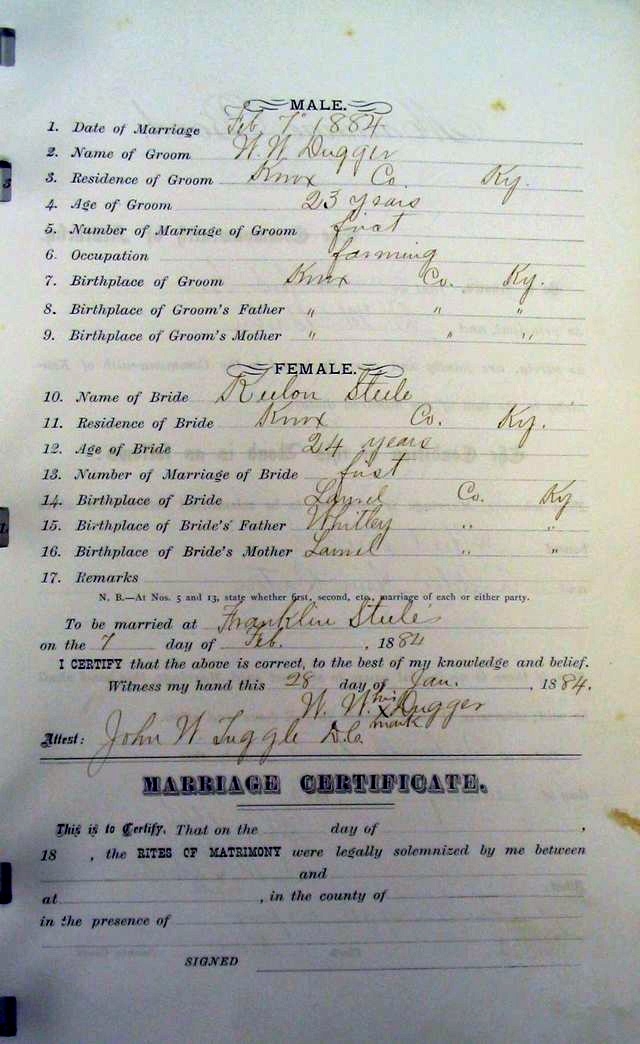 MALE.
1. Date of Marriage Feb. 7" 1884
2. Name of Groom W. W Dugger
3. Residence of Groom Knox Co. Ky.
4. Age of Groom 23 years
5. Number of Marriage of Groom first
6. Occupation farming
7. Birthplace of Groom Knox Co. Ky.
8. Birthplace of Groom's Father " " "
9. Birthplace of Groom's Mother " " "
FEMALE.
10. Name of Bride Steele
11. Residence of Bride Knox Co. Ky.
12. Age of Bride 24 years
13. Number of Marriage of Bride first
14. Birthplace of Bride Laurel Co. Ky
15. Birthplace of Bride's Father Whitley " "
16. Birthplace of Bride's Mother Laurel " "
17. Remarks
N. B.—At Nos. 5 and 13, state whether first, second, etc., marriage of each or either party.
To be married at Franklin Steele's
on the 7 day of Feb. , 1884
I CERTIFY that the above is correct, to the best of my knowledge and belief.
Witness my hand this 28 day of Jan. , 1884.
W. W his x mark Dugger
Attest: John W Tuggle D.C.
MARRIAGE CERTIFICATE.
This is to Certify, That on the day of ,
18 , the RITES OF MATRIMONY were legally solemnized by me between
and
at , in the county of
in the presence of
SIGNED